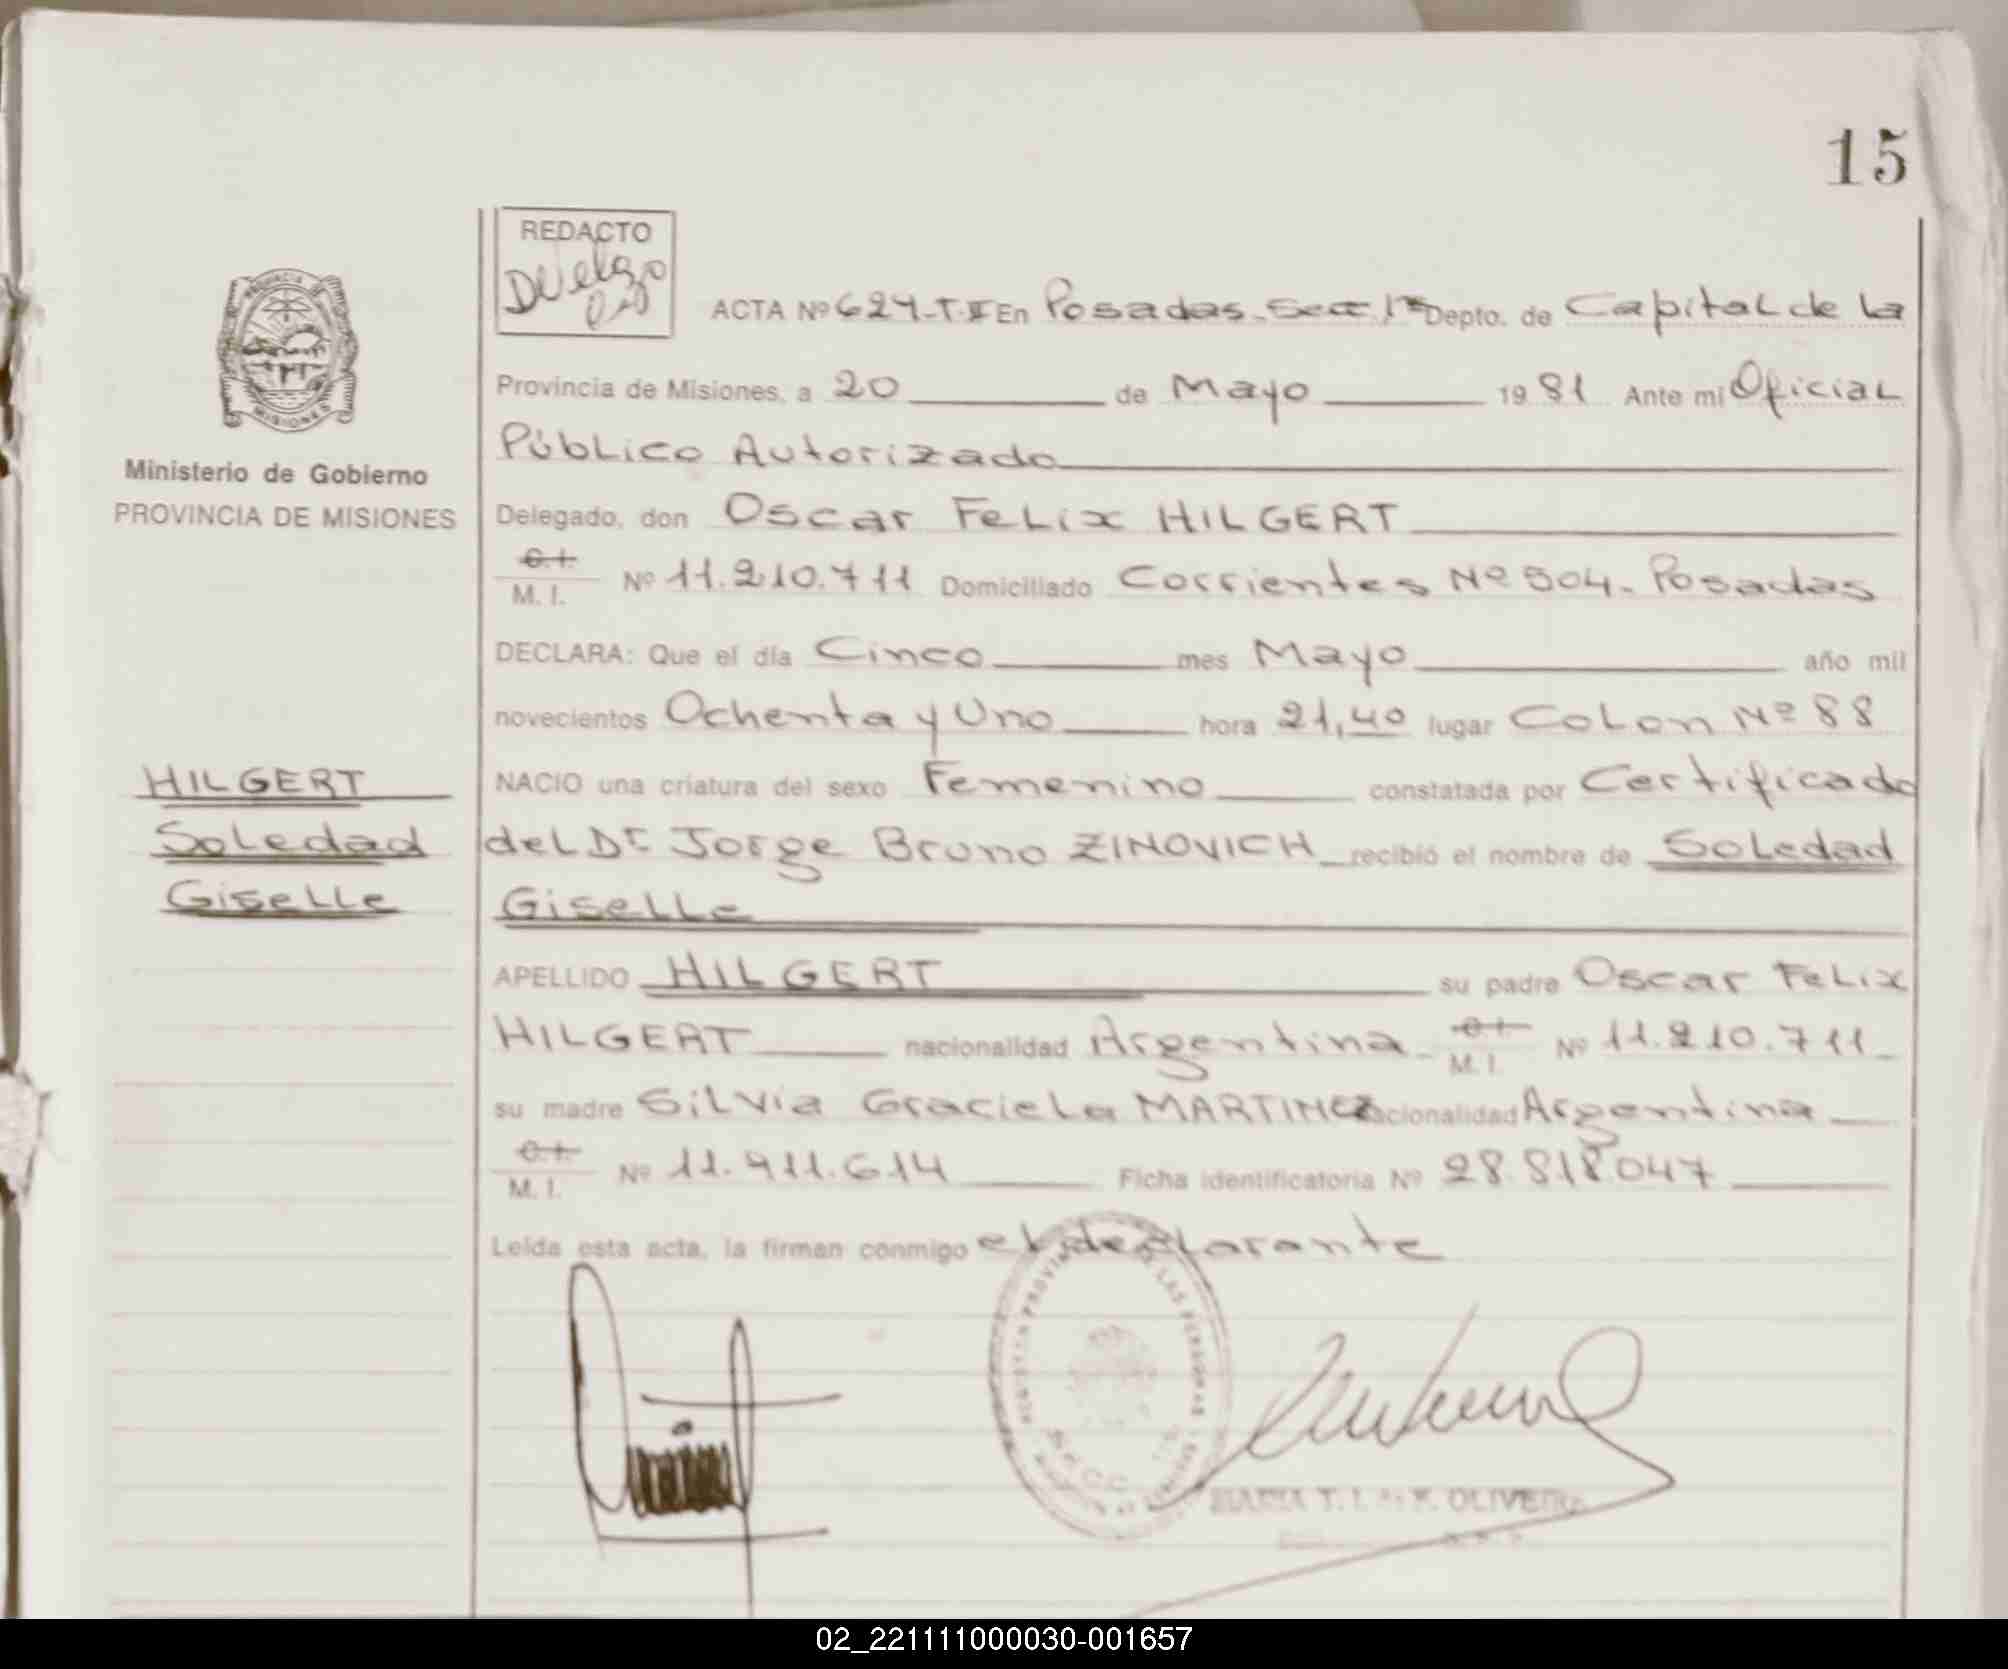 15
REDACTO
ACTA Nº 627-T.II En Posadas-Secc. 1ª Depto. de Capital de la
Provincia de Misiones, a 20 de Mayo 1981 Ante mi Oficial
Público Autorizado
Ministerio de Gobierno
PROVINCIA DE MISIONES
Delegado, don Oscar Felix HILGERT
C.I. M. I. Nº 11.210.711 Domiciliado Corrientes Nº 504. Posadas
DECLARA: Que el día Cinco mes Mayo año mil
novecientos Ochenta y Uno hora 21,40 lugar Colon Nº 88
HILGERT
Soledad
Giselle
NACIO una criatura del sexo Femenino constatada por Certificado
del Dr Jorge Bruno ZINOVICH recibió el nombre de Soledad
Giselle
APELLIDO HILGERT su padre Oscar Felix
HILGERT nacionalidad Argentina C.I. M. I. Nº 11.210.711
su madre Silvia Graciela MARTINEZ nacionalidad Argentina
C.I. M. I. Nº 11.911.614 Ficha identificatoria Nº 28.818.047
Leída esta acta, la firman conmigo el declarante
MARIA T. OLIVEIRA
02_221111000030-001657